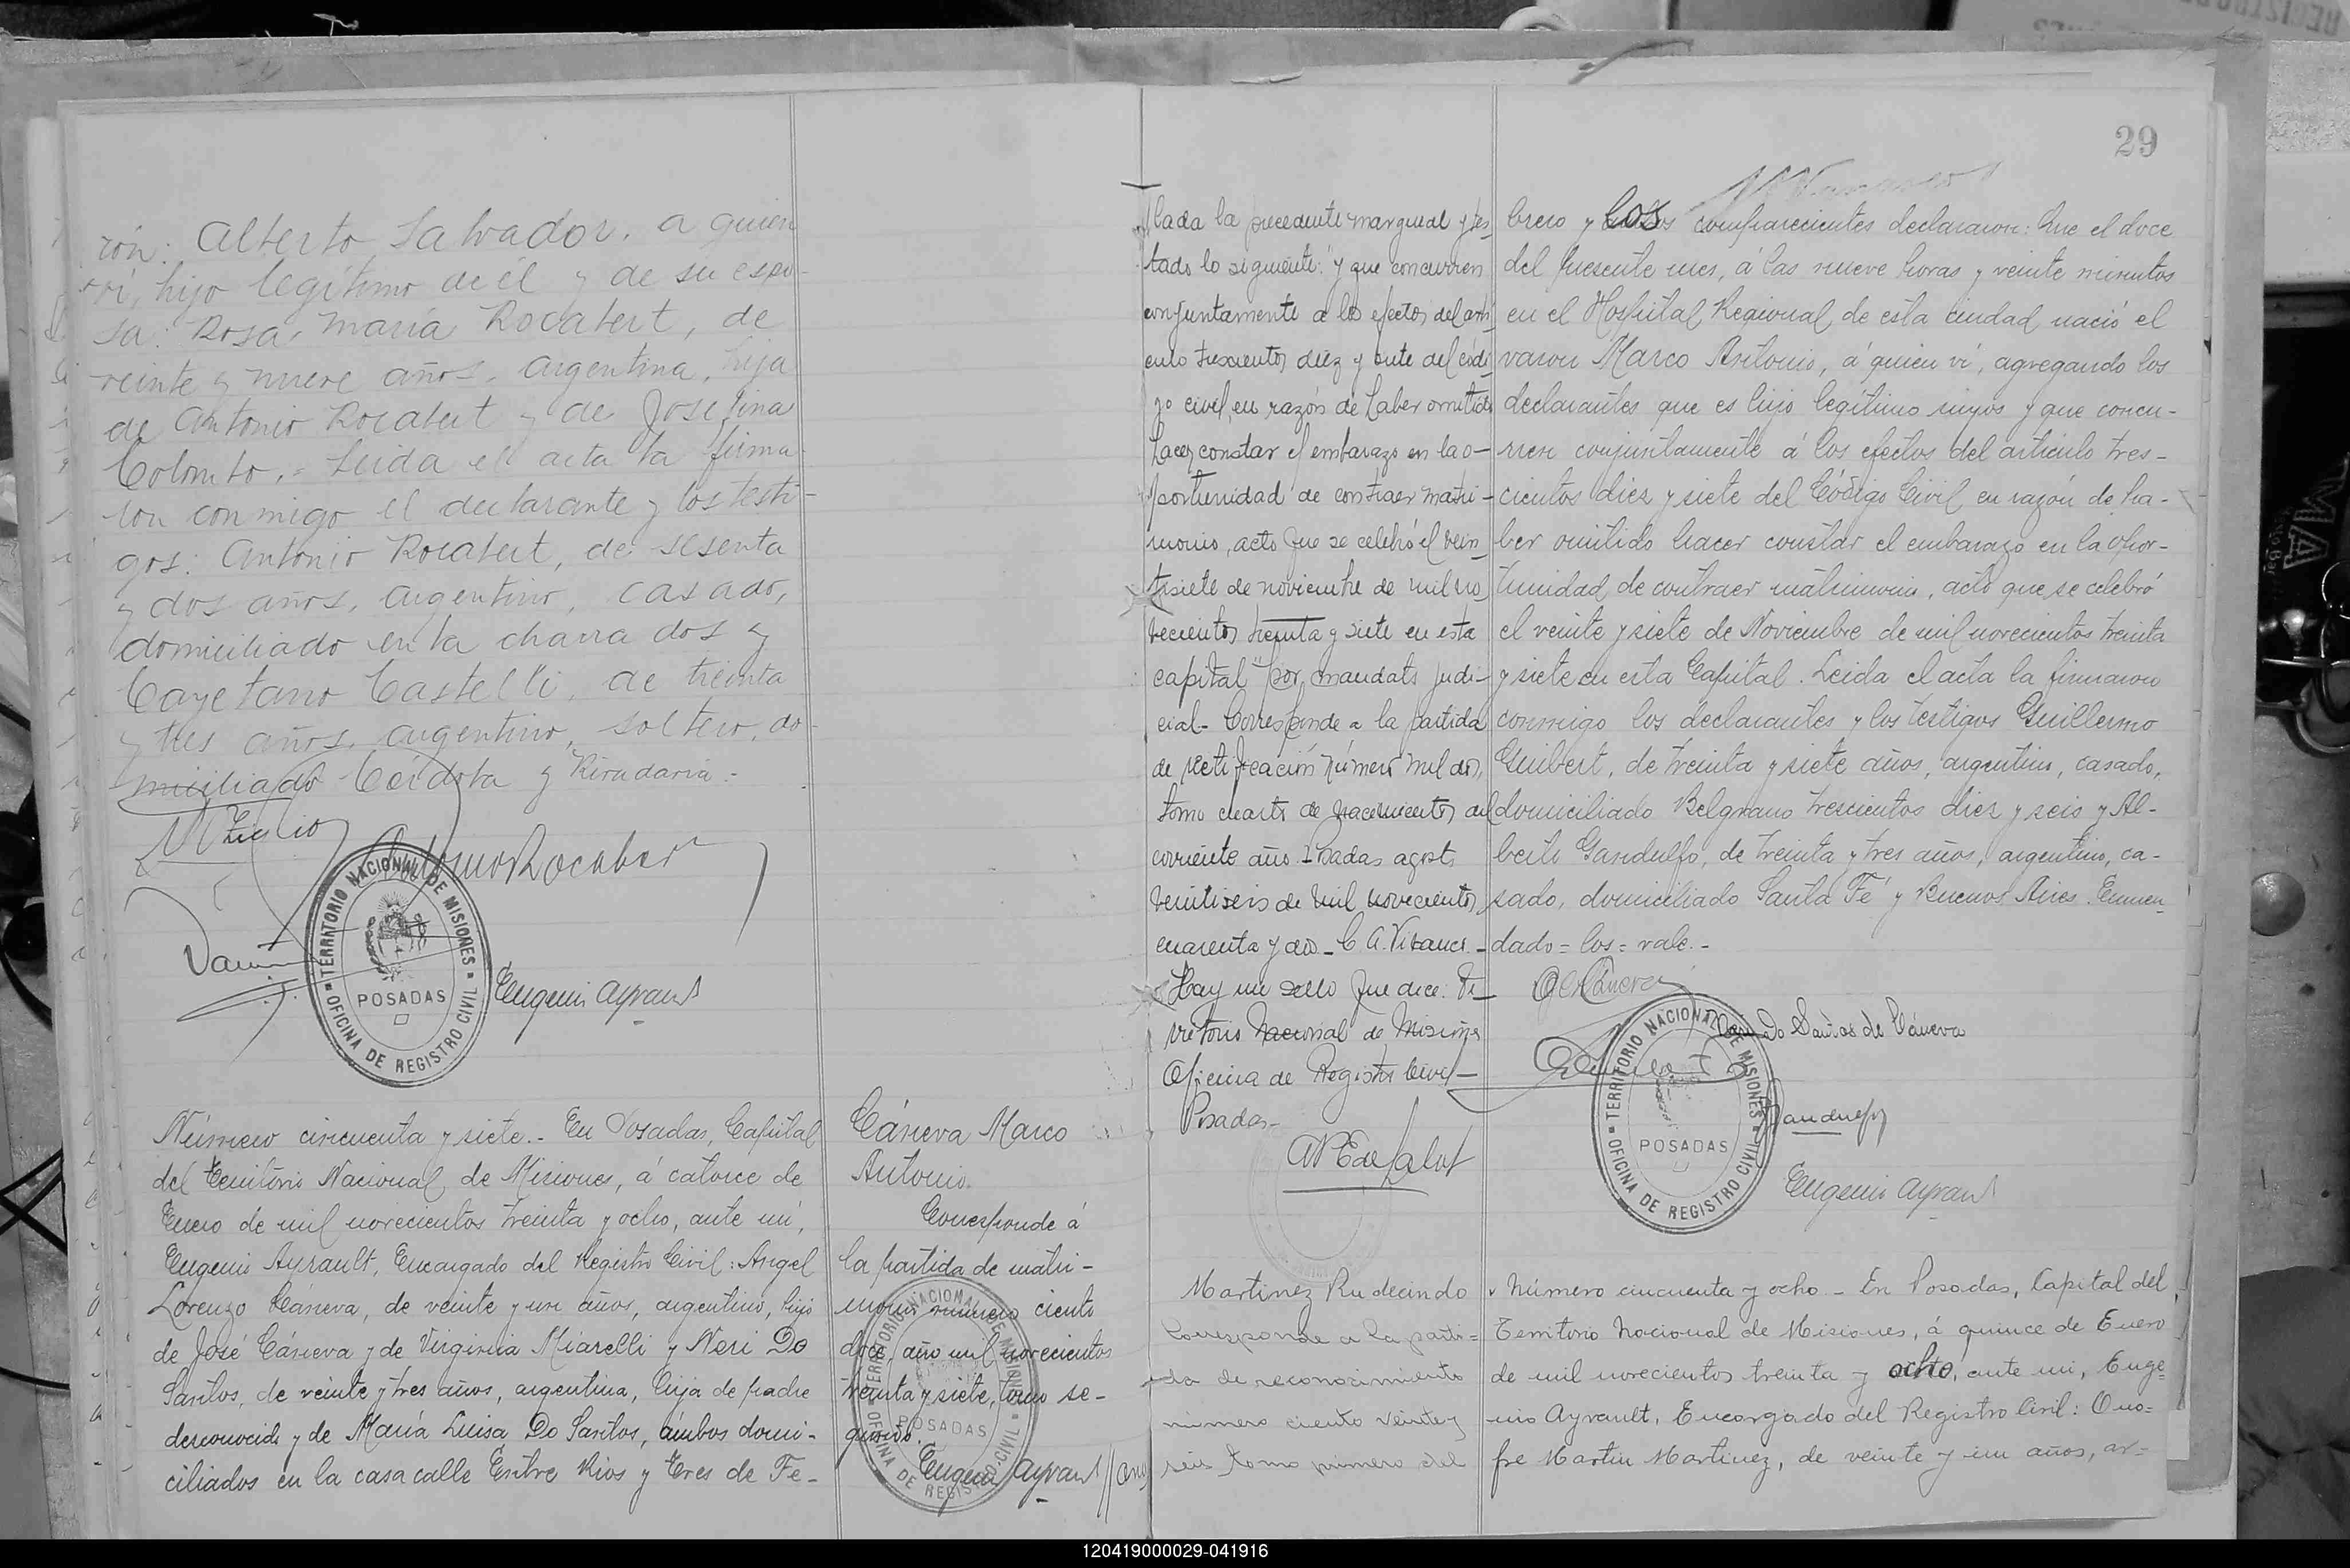 rón: Alberto Salvador, a quien
ví, hijo legítimo de él y de su espo-
sa: Rosa María Rocabert, de
veinte y nueve años, argentina, hija
de Antonio Rocabert y de Josefina
Colombo.= Leida el acta la firma-
ron conmigo el declarante y los testi-
gos: Antonio Rocabert, de sesenta
y dos años, argentino, casado,
domiciliado en la chacra dos y
Cayetano Castelli, de treinta
y tres años, argentino, soltero, do-
miciliado Córdoba y Rivadavia.-
Antonio Rocabert
TERRITORIO NACIONAL DE MISIONES
POSADAS
OFICINA DE REGISTRO CIVIL
Eugenio Ayrault
Número cincuenta y siete.- En Posadas, Capital
del Territorio Nacional de Misiones, á catorce de
Enero de mil novecientos treinta y ocho, ante mí,
Eugenio Ayrault, Encargado del Registro Civil: Angel
Lorenzo Cáneva, de veinte y un años, argentino, hijo
de José Cáneva y de Virginia Miarelli y Neri Do
Santos, de veinte y tres años, argentina, hija de padre
desconocido y de María Luisa Do Santos, ámbos domi-
ciliados en la casa calle Entre Rios y Tres de Fe-
Cáneva Marco
Antonio.
Corresponde á
la partida de matri-
monio número ciento
doce, año mil novecientos
treinta y siete, tomo se-
gundo.
Eugenio Ayrault
TERRITORIO NACIONAL DE MISIONES
POSADAS
OFICINA DE REGISTRO CIVIL
29
lada la precedente marginal y tes-
tado lo siguiente: "y que concurren
conjuntamente a los efectos del artí-
culo trescientos diez y siete del códi-
go civil, en razón de haber omitido
hacer constar el embarazo en la o-
portunidad de contraer matri-
monio, acto que se celebró el vein-
tisiete de noviembre de mil no-
vecientos treinta y siete en esta
capital" por mandato judi-
cial- Corresponde a la partida
de rectificación número mil dos,
tomo cuarto de nacimientos del
corriente año. Posadas agosto
veintiseis de mil novecientos
cuarenta y dos -
Hay un sello que dice: Te-
rritorio Nacional de Misiones
Oficina de Registro Civil -
Posadas-
brero y los comparecientes declararon: Que el doce
del presente mes, á las nueve horas y veinte minutos
en el Hospital Regional de esta ciudad nació el
varon Marco Antonio, á quien ví, agregando los
declarantes que es hijo legítimo suyos y que concu-
rren conjuntamente á los efectos del artículo tres-
cientos diez y siete del Código Civil en razón de ha-
ber omitido hacer constar el embarazo en la opor-
tunidad de contraer matrimonio, acto que se celebró
el veinte y siete de Noviembre de mil novecientos treinta
y siete en esta Capital. Leida el acta la firmaron
conmigo los declarantes y los testigos Guillermo
Guibert, de treinta y siete años, argentino, casado,
domiciliado Belgrano trescientos diez y seis y Al-
berto Gandulfo, de treinta y tres años, argentino, ca-
sado, domiciliado Santa Fé y Buenos Aires. Enmen-
dado = los = vale.-
Do Santos de Cáneva
TERRITORIO NACIONAL DE MISIONES
POSADAS
OFICINA DE REGISTRO CIVIL
Eugenio Ayrault
Martinez Rudecindo
Corresponde a la parti-
da de reconocimiento
número ciento veinte y
seis tomo primero del
Número cincuenta y ocho - En Posadas, Capital del
Territorio Nacional de Misiones, á quince de Enero
de mil novecientos treinta y ocho, ante mi, Euge-
nio Ayrault, Encargado del Registro Civil: Ono-
fre Martin Martinez, de veinte y un años, ar-
120419000029-041916